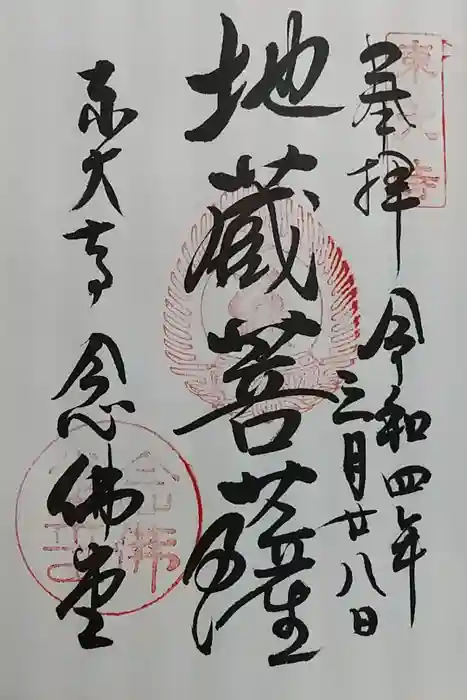 東大寺
奉拝
令和四年
三月廿八日
地蔵菩薩
東大寺
念佛堂